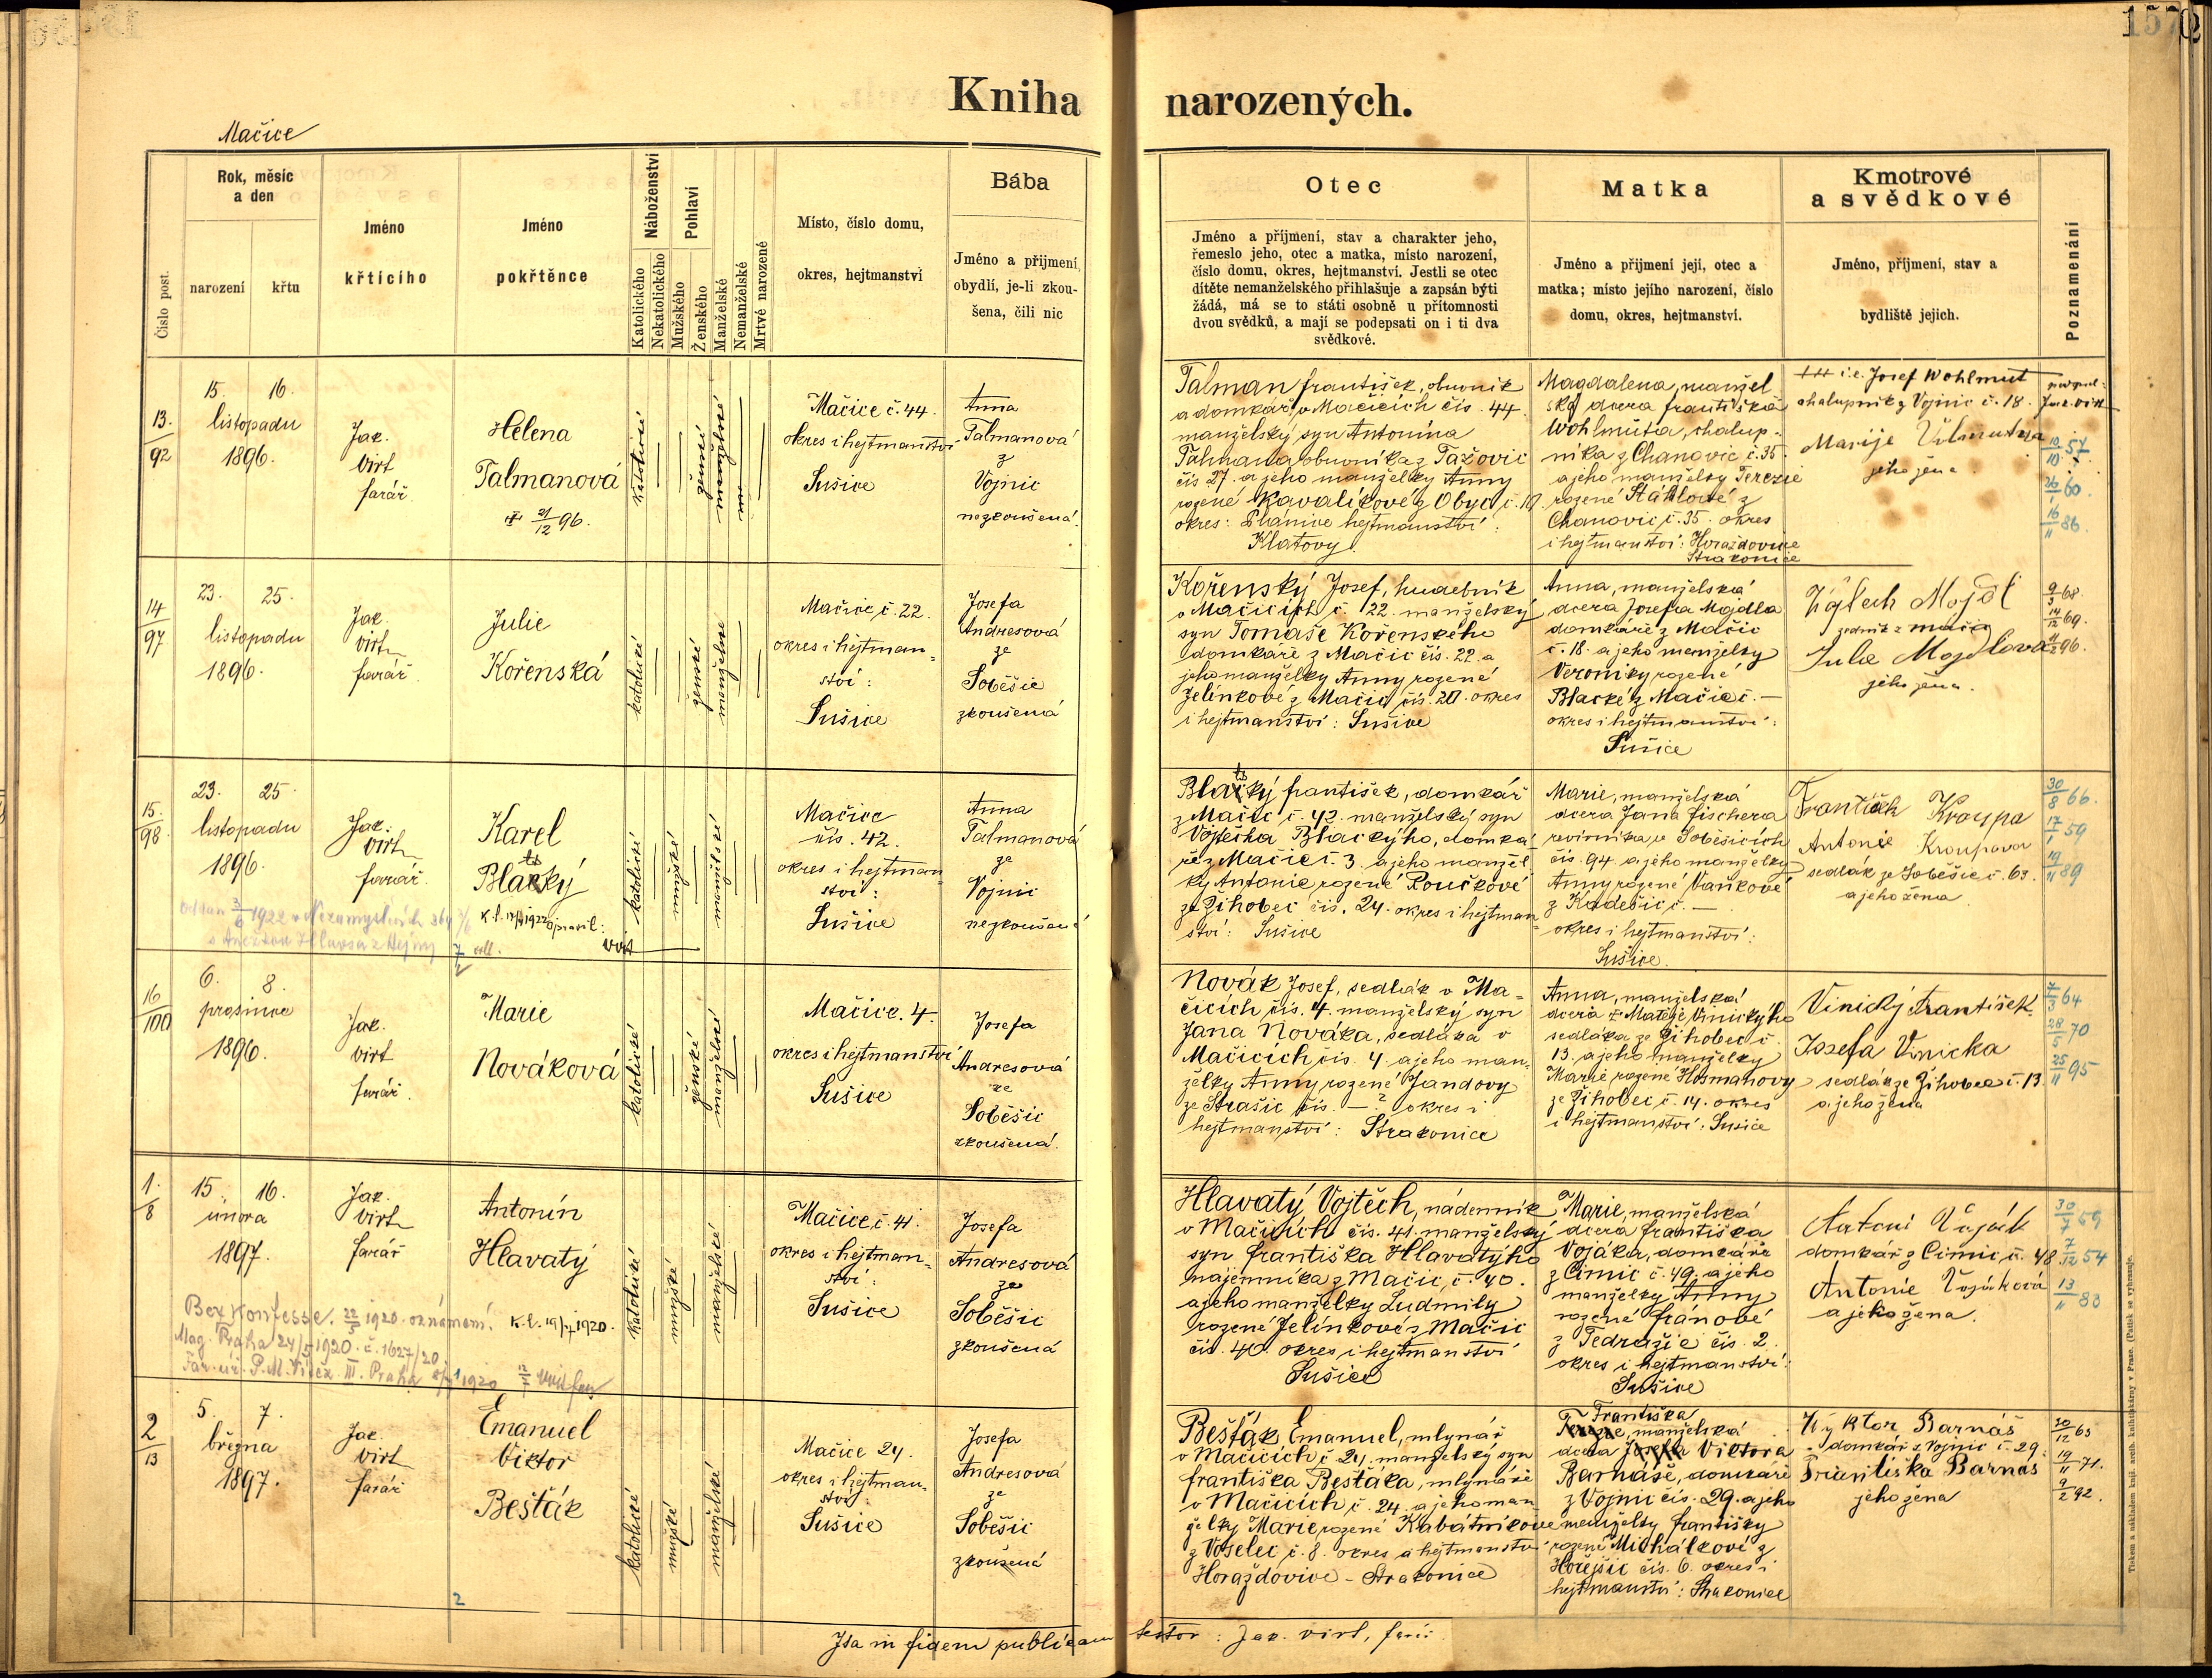 157
Kniha narozených.
Mačice
Číslo post.
Rok, měsíc
a den
narození
křtu
Jméno
křtícího
Jméno
pokřtěnce
Náboženství
Katolického
Nekatolického
Pohlaví
Mužského
Ženského
Manželské
Nemanželské
Mrtvě narozené
Místo, číslo domu,
okres, hejtmanství
Bába
Jméno a příjmení,
obydlí, je-li zkou-
šena, čili nic
Otec
Jméno a příjmení, stav a charakter jeho,
řemeslo jeho, otec a matka, místo narození,
číslo domu, okres, hejtmanství. Jestli se otec
dítěte nemanželského přihlašuje a zapsán býti
žádá, má se to státi osobně u přítomnosti
dvou svědků, a mají se podepsati on i ti dva
svědkové.
Matka
Jméno a příjmení její, otec a
matka; místo jejího narození, číslo
domu, okres, hejtmanství.
Kmotrové
a svědkové
Jméno, příjmení, stav a
bydliště jejich.
Poznamenání
13.
92
15. 16.
listopadu
1896.
Jak.
Virt
farář.
Helena
Talmanová
21/12 96.
katolické
ženské
manželské
Mačice č. 44.
okres i hejtmanství
Sušice
Anna
Talmanová
z
Vojnic
nezkoušená.
Talman František, obuvník
a domkář v Mačicích čís. 44.
manželský syn Antonína
Talmana obuvníka z Tažovic
čís 27. a jeho manželky Anny
rozené Kavalíkové z Obyc č. 10.
okres: Planice hejtmanství:
Klatovy.
Magdalena, manžel
ská dcera Františka
Wohlmuta, chalup-
níka z Chanovic č. 35.
a jeho manželky Terezie
rozené Stáhlové z
Chanovic č. 35. okres
i hejtmanství: Horažďovice
Strakonice
i. e. Josef Wohlmut
chalupník z Vojnic č. 18.
Marije
jeho žena.
podpsal:
Jak. Virt
10/10 57.
26/1 60.
16/11 86.
14
97
23. 25.
listopadu
1896.
Jak.
Virt
farář.
Julie
Kořenská
katolické
ženské
manželské
Mačice č. 22.
okres i hejtman-
ství:
Sušice
Josefa
Andresová
ze
Soběšic
zkoušená
Kořenský Josef, hudebník
v Mačicích č. 22. manželský
syn Tomáše Kořenského
domkáře z Mačic čís. 22. a
jeho manželky Anny rozené
Jelínkové z Mačic čís. 20. okres
i hejtmanství: Sušice
Anna, manželská
dcera Josefa Majdla
domkáře z Mačic
č. 18. a jeho manželky
Veroniky rozené
Blacké z Mačic č. —
okres i hejtmanství:
Sušice
Vojtěch Mojdl
zedník z Mačic
Julie Mojdlova
jeho žena.
9/3 68.
14/12 69.
96.
15.
98.
23. 25.
listopadu
1896.
Jak.
Virt
farář.
Karel
Blatský
K. l. 1922 opravil:
Virt
Oddán 3/6 1922 v Nezamyslicích
s Anežkou Hlavsa z Hejny
katolické
mužské
manželské
Mačice
čís. 42.
okres i hejtman
ství:
Sušice
Anna
Talmanová
ze
Vojnic
nezkoušená
Blatský František, domkář
z Mačic č. 42. manželský syn
Vojtěcha Blackýho, domká
ře z Mačic č. 3. a jeho manžel
ky Antonie rozené Roučkové
ze Žihobec čís. 24. okres i hejtman
ství: Sušice
Marie, manželská
dcera Jana Fischera
revírníka ze Soběšicích
čís. 94. a jeho manželky
Anny rozené Vaňkové
z Kadešic č. —
okres i hejtmanství:
Sušice.
František Kroupa
Antonie Kroupova
sedlák ze Soběšic č. 63.
a jeho žena.
30/8 66.
17/1 59
19/11 89
16
100
6. 8.
prosince
1896.
Jak.
Virt
farář.
Marie
Nováková
katolické
ženské
manželské
Mačice. 4.
okres i hejtmanství
Sušice
Josefa
Andresová
ze
Soběšic
zkoušená.
Novák Josef, sedlák v Ma-
čicích čís. 4. manželský syn
Jana Nováka, sedláka v
Mačicích čís. 4. a jeho man-
želky Anny rozené Jandovy
ze Strašic čís. —? okres i
hejtmanství: Strakonice
Anna, manželská
dcera Matěje Vinickýho
sedláka ze Žihobec č.
13. a jeho manželky
Marie rozené Hosmanovy
ze Žihobec č. 14. okres
i hejtmanství: Sušice
Vinický František
Josefa Vinicka
sedlák ze Žihobec č. 13.
a jeho žena
7/3 64
28/5 70
25/11 95
1.
8
15. 16.
února
1897.
Jak.
Virt
farář
Antonín
Hlavatý
K. l. 1920.
Bez Konfesse. 22/5 1920. oznámení.
Mag. Praha 24/5 1920. č. 1627/20
Far. úř. P. M. Vítěz. III. Praha 1920
katolické
mužské
manželské
Mačice č. 41.
okres i hejtman-
ství:
Sušice
Josefa
Andresová
ze
Soběšic
zkoušená
Hlavatý Vojtěch, nádenník
v Mačicích čís. 41. manželský
syn Františka Hlavatýho
nájemníka z Mačic, č. 40.
a jeho manželky Ludmily
rozené Jelínkové z Mačic
čís. 40. okres i hejtmanství
Sušice
Marie, manželská
dcera Františka
Vojáka, domkáře
z Čimic č. 49. a jeho
manželky Anny
rozené Fránové
z Tedražic čís. 2.
okres i hejtmanství:
Sušice
Antoni Voják
domkář z Čimic, č. 48.
Antonie Vojáková
a jeho žena.
30/7 59
7/12 54
13/11 83
2
13
5. 7.
března
1897.
Jak.
Virt
farář
Emanuel
Viktor
Bešťák
katolické
mužské
manželské
Mačice 24.
okres i hejtman-
ství:
Sušice
Josefa
Andresová
ze
Soběšic
zkoušená
Bešťák Emanuel, mlynář
v Mačicích č. 24. manželský syn
Františka Bešťáka, mlynáře
v Mačicích č. 24. a jeho man
želky Marie rozené Kabátníkove
z Voselec č. 8. okres a hejtmanství
Horažďovice - Strakonice
Františka
manželská
dcera Viktora
Barnáše, domkáře
z Vojnic čís. 29. a jeho
manželky Františky
rozené Michálkové z
Hořejšic čís. 6. okres i
hejtmanství: Strakonice
Wyktor Barnáš
domkář z Vojnic č. 29.
Františka Barnáš
jeho žena
30/12 63
19/11 71.
9/2 92.
2
Ita in fidem publicam testor: Jak. Virt, farář.
Tiskem a nákladem kníž. arcib. knihtiskárny v Praze. (Patisk se vyhrazuje.